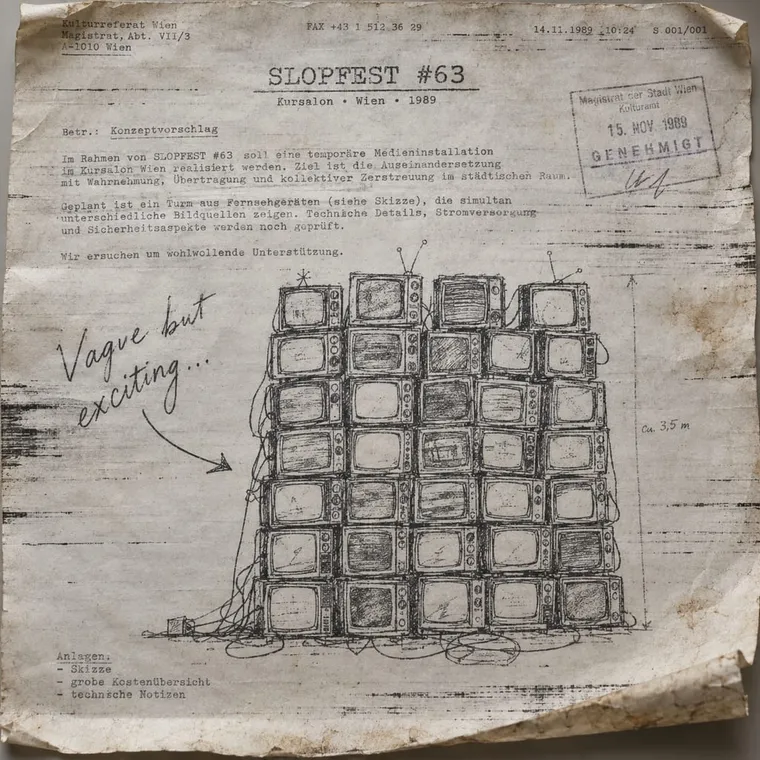 Kulturreferat Wien
Magistrat, Abt. VII/3
A-1010 Wien
FAX +43 1 512 36 29
14.11.1989 10:24 S.001/001
SLOPFEST #63
Kursalon • Wien • 1989
Magistrat der Stadt Wien
Kulturamt
15. NOV 1989
GENEHMIGT
Betr.: Konzeptvorschlag
Im Rahmen von SLOPFEST #63 soll eine temporäre Medieninstallation
im Kursalon Wien realisiert werden. Ziel ist die Auseinandersetzung
mit Wahrnehmung, Übertragung und kollektiver Zerstreuung im städtischen Raum.
Geplant ist ein Turm aus Fernsehgeräten (siehe Skizze), die simultan
unterschiedliche Bildquellen zeigen. Technische Details, Stromversorgung
und Sicherheitsaspekte werden noch geprüft.
Wir ersuchen um wohlwollende Unterstützung.
Vague but
exciting...
ca. 3,5 m
Anlagen:
- Skizze
- grobe Kostenübersicht
- technsche Notizen